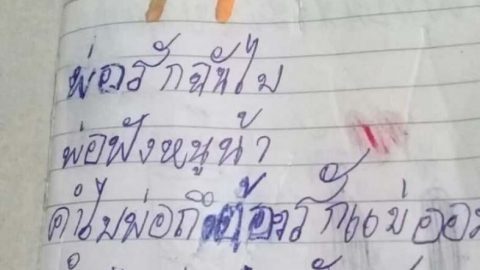 พ่อรักฉันไม
พ่อฟังหนูน้า
คำไมพ่อถึต้องรักแม่ออ